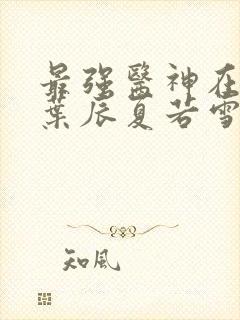 最强醫神在
葉辰夏若雪
知風